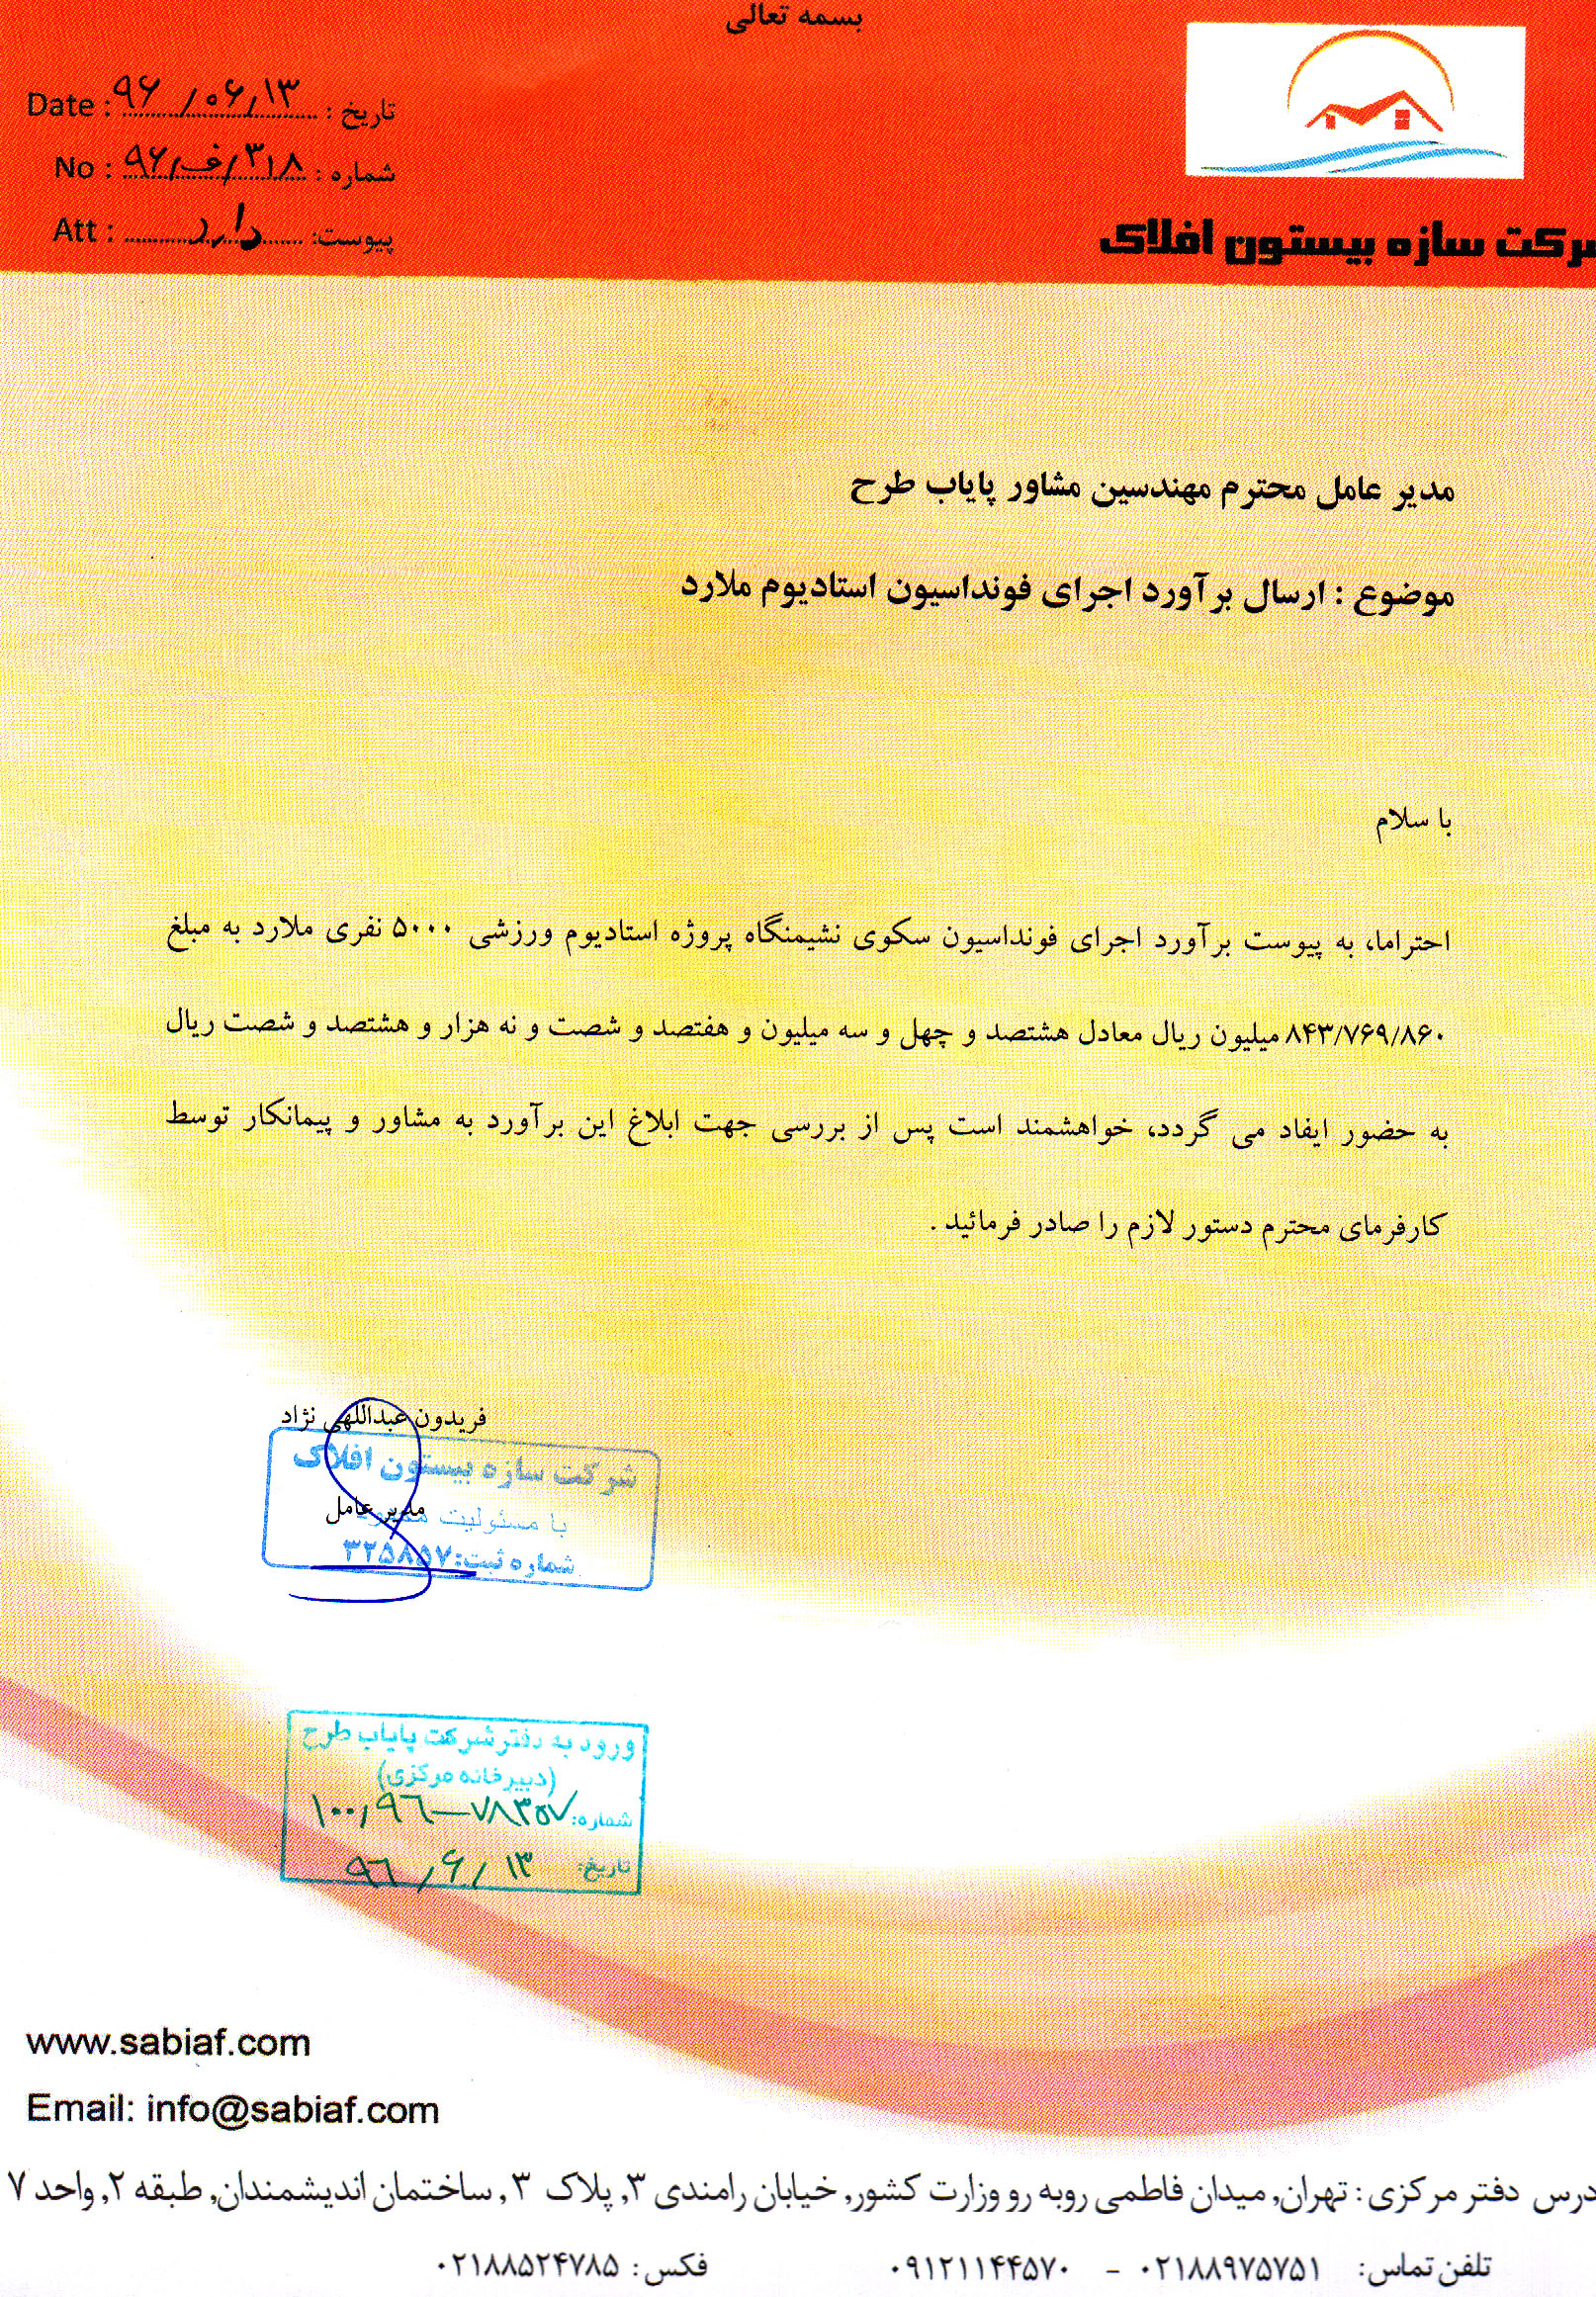 بسمه تعالی
تاریخ : ۹۶/۰۶/۱۳ Date :
شماره : ۳۱۸/ف/۹۶ No :
پیوست: دارد Att :
شرکت سازه بیستون افلاک
مدیر عامل محترم مهندسین مشاور پایاب طرح
موضوع : ارسال برآورد اجرای فونداسیون استادیوم ملارد
با سلام
احتراما، به پیوست برآورد اجرای فونداسیون سکوی نشیمنگاه پروژه استادیوم ورزشی ۵۰۰۰ نفری ملارد به مبلغ
۸۴۳/۷۶۹/۸۶۰ میلیون ریال معادل هشتصد و چهل و سه میلیون و هفتصد و شصت و نه هزار و هشتصد و شصت ریال
به حضور ایفاد می گردد، خواهشمند است پس از بررسی جهت ابلاغ این برآورد به مشاور و پیمانکار توسط
کارفرمای محترم دستور لازم را صادر فرمائید .
فریدون عبداللهی نژاد
شرکت سازه بیستون افلاک
مدیر عامل
با مسئولیت محدود
شماره ثبت: ۳۲۵۸۵۷
ورود به دفتر شرکت پایاب طرح
(دبیرخانه مرکزی)
شماره: ۱۰۰,۹۶-۷۸۳۵۷
تاریخ: ۹۶/۶/۱۳
www.sabiaf.com
Email: info@sabiaf.com
درس دفتر مرکزی : تهران, میدان فاطمی روبه رو وزارت کشور, خیابان رامندی ۳, پلاک ۳ , ساختمان اندیشمندان, طبقه ۲, واحد ۷
تلفن تماس: ۰۲۱۸۸۹۷۵۷۵۱ - ۰۹۱۲۱۱۴۴۵۷۰ فکس : ۰۲۱۸۸۵۲۴۷۸۵